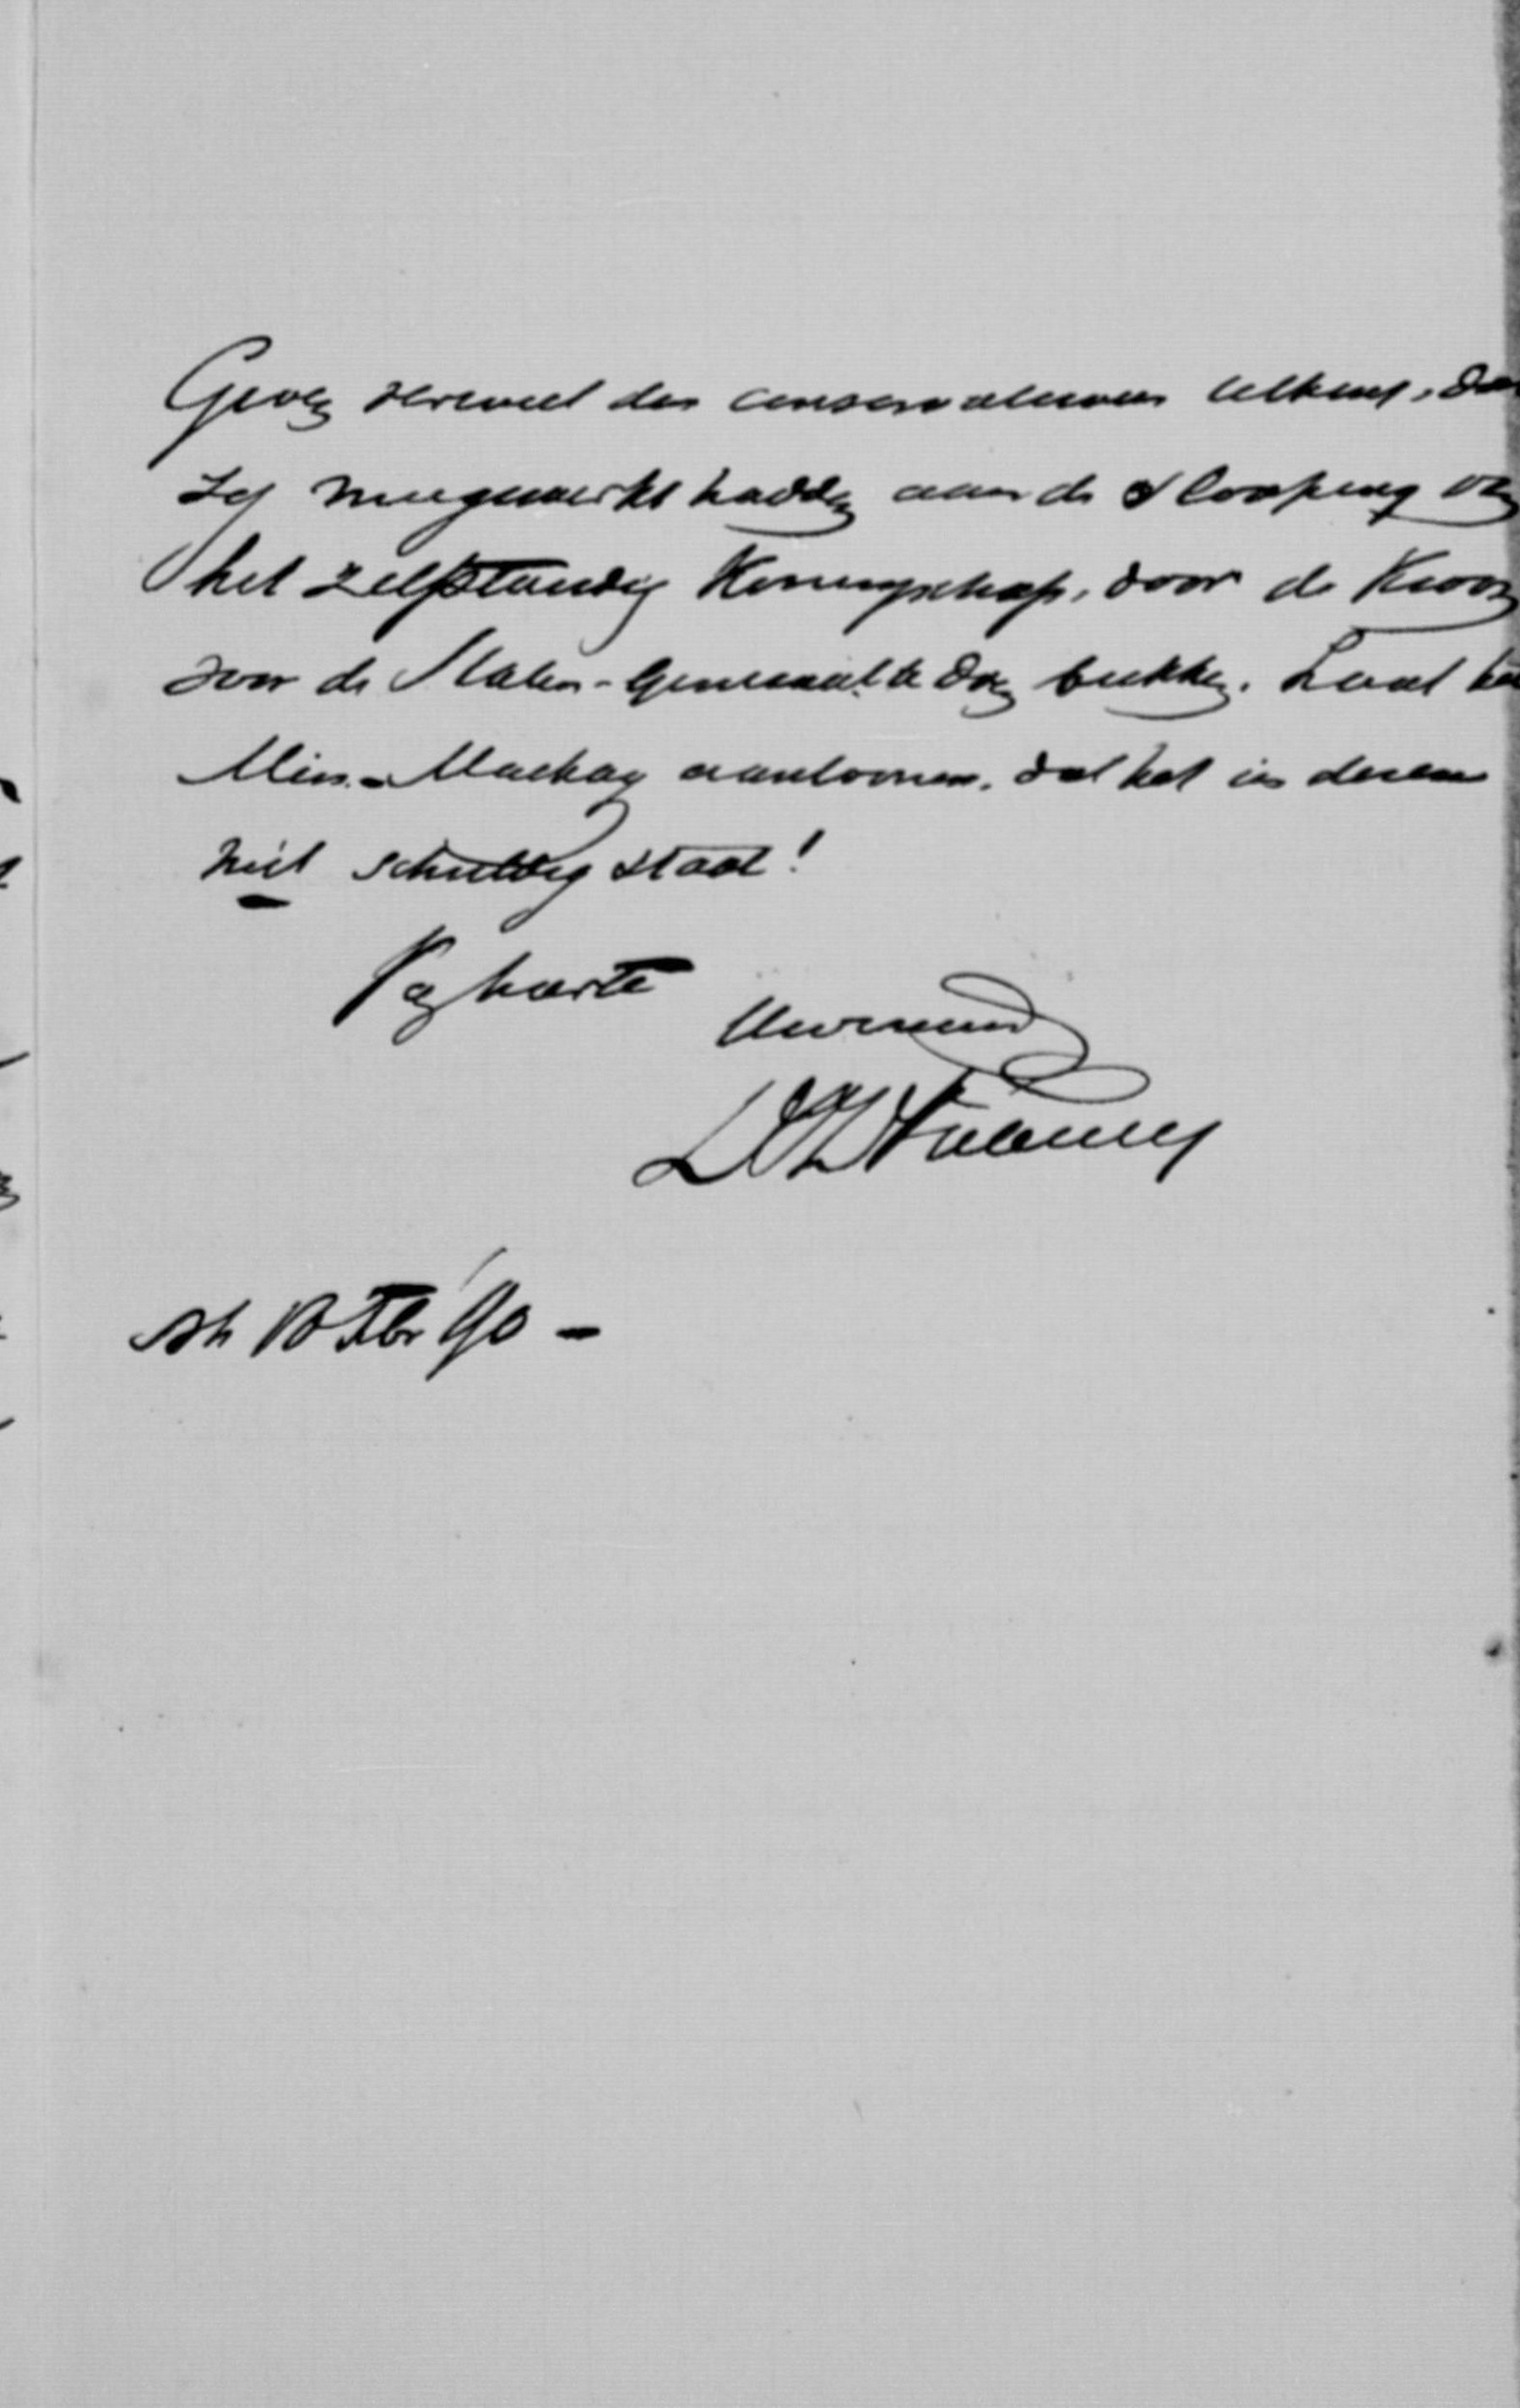 verweet den conservatieven telkens, dat
zij meegewerkt hadden aan de slooping van
het zelfstandig Koningschap, door de Kroon
voor de Staten-Generaal te doen bukken. Laat het
Min.-Mackay aantoonen, dat het in dezen
niet schuldig staat!
Vg harte
Uw vriend
13 Febr '90 -